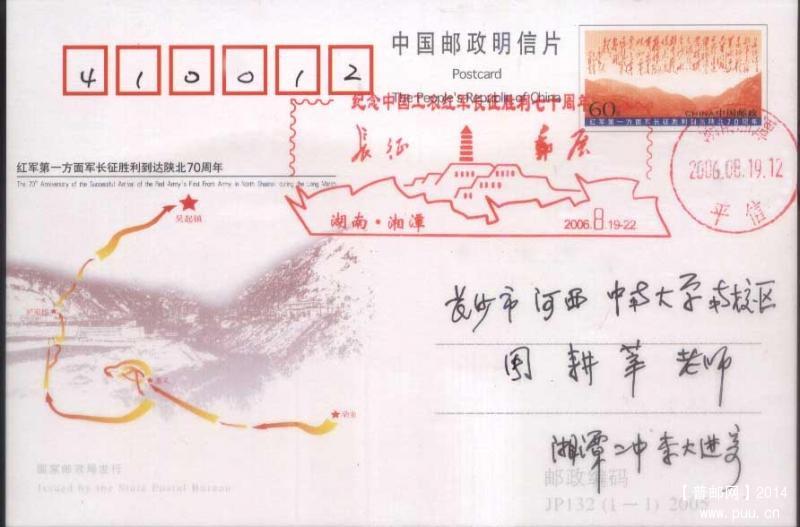 410012
中国邮政明信片
Postcard
The People's Republic of China
60分
CHINA 中国邮政
红军第一方面军长征胜利到达陕北70周年
纪念中国工农红军长征胜利七十周年
长征 邮展
湖南·湘潭
2006.8.19-22
湖南湘潭
2006.08.19.12
红军第一方面军长征胜利到达陕北70周年
The 70th Anniversary of the Successful Arrival of the Red Army's First Front Army in North Shaanxi during the Long March
吴起镇
泸定桥
遵义
瑞金
长沙市河西中南大学南校区
周耕莘老师
湘潭二中李大进寄
国家邮政局发行
Issued by the State Postal Bureau
邮政编码
JP132 (1-1) 2005
【普邮网】2014
www.puu.cn